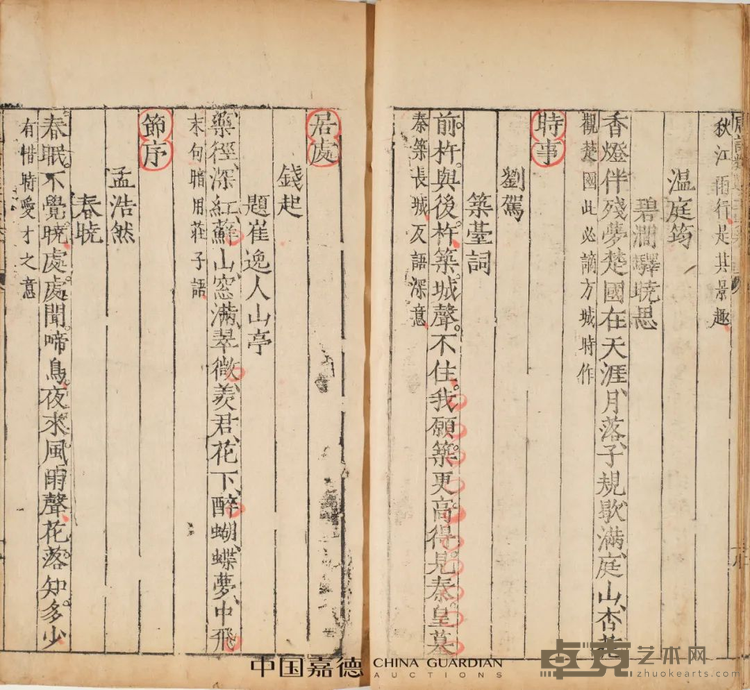 秋江雨行是其景趣
温庭筠
碧澗驛曉思
香燈伴殘夢楚國在天涯月落子規歇滿庭山杏花
觀楚國此必謫方城時作
時事
劉駕
築臺詞
前杵與後杵築城聲不住我願築更高得見秦皇墓
秦築長城反語深意
居處
錢起
題崔逸人山亭
藥徑深紅蘚山窓滿翠微羨君花下醉蝴蝶夢中飛
末句暗用莊子語
節序
孟浩然
春曉
春眠不覺曉處處聞啼鳥夜來風雨聲花落知多少
有惜時愛才之意
中国嘉德 CHINA GUARDIAN AUCTIONS
卓克艺术网
zhuokearts.com